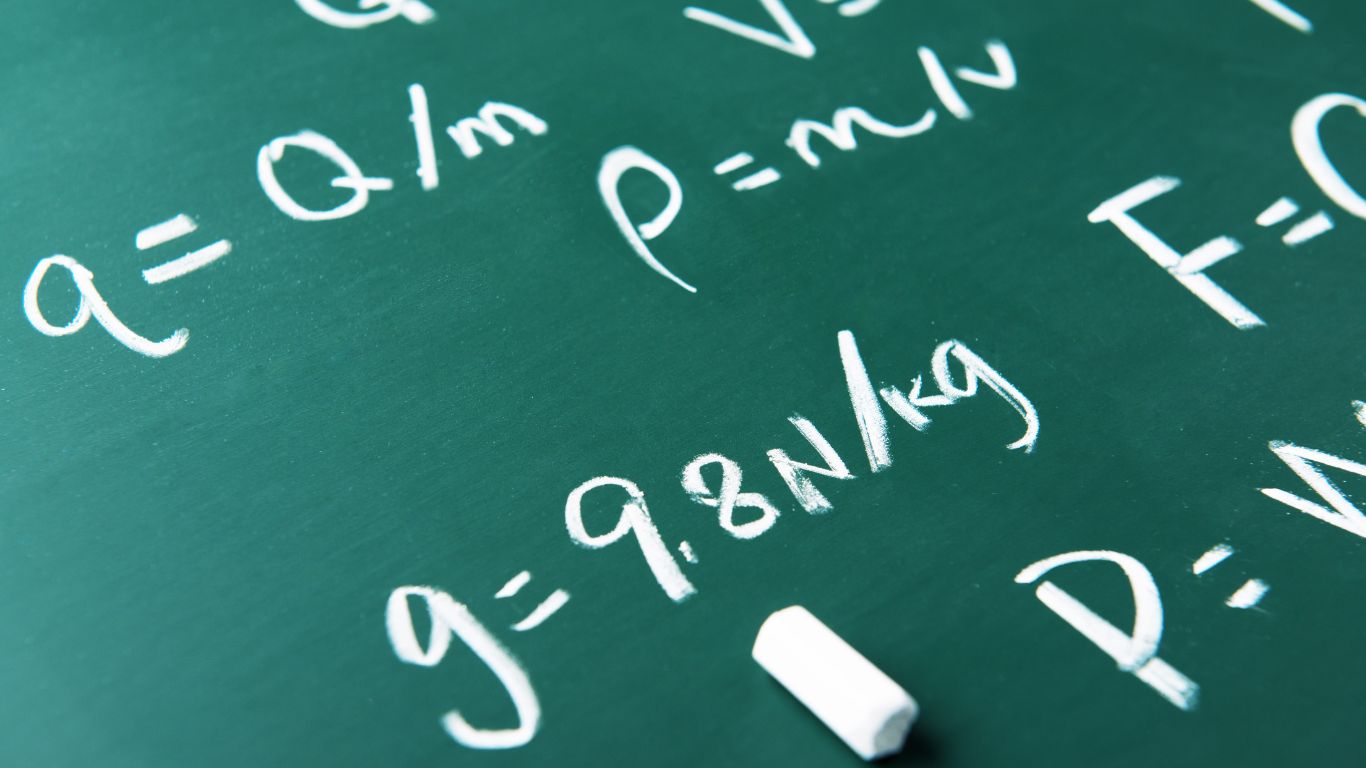 q = Q/m
ρ = m/v
F =
g = 9.8 N/kg
P =